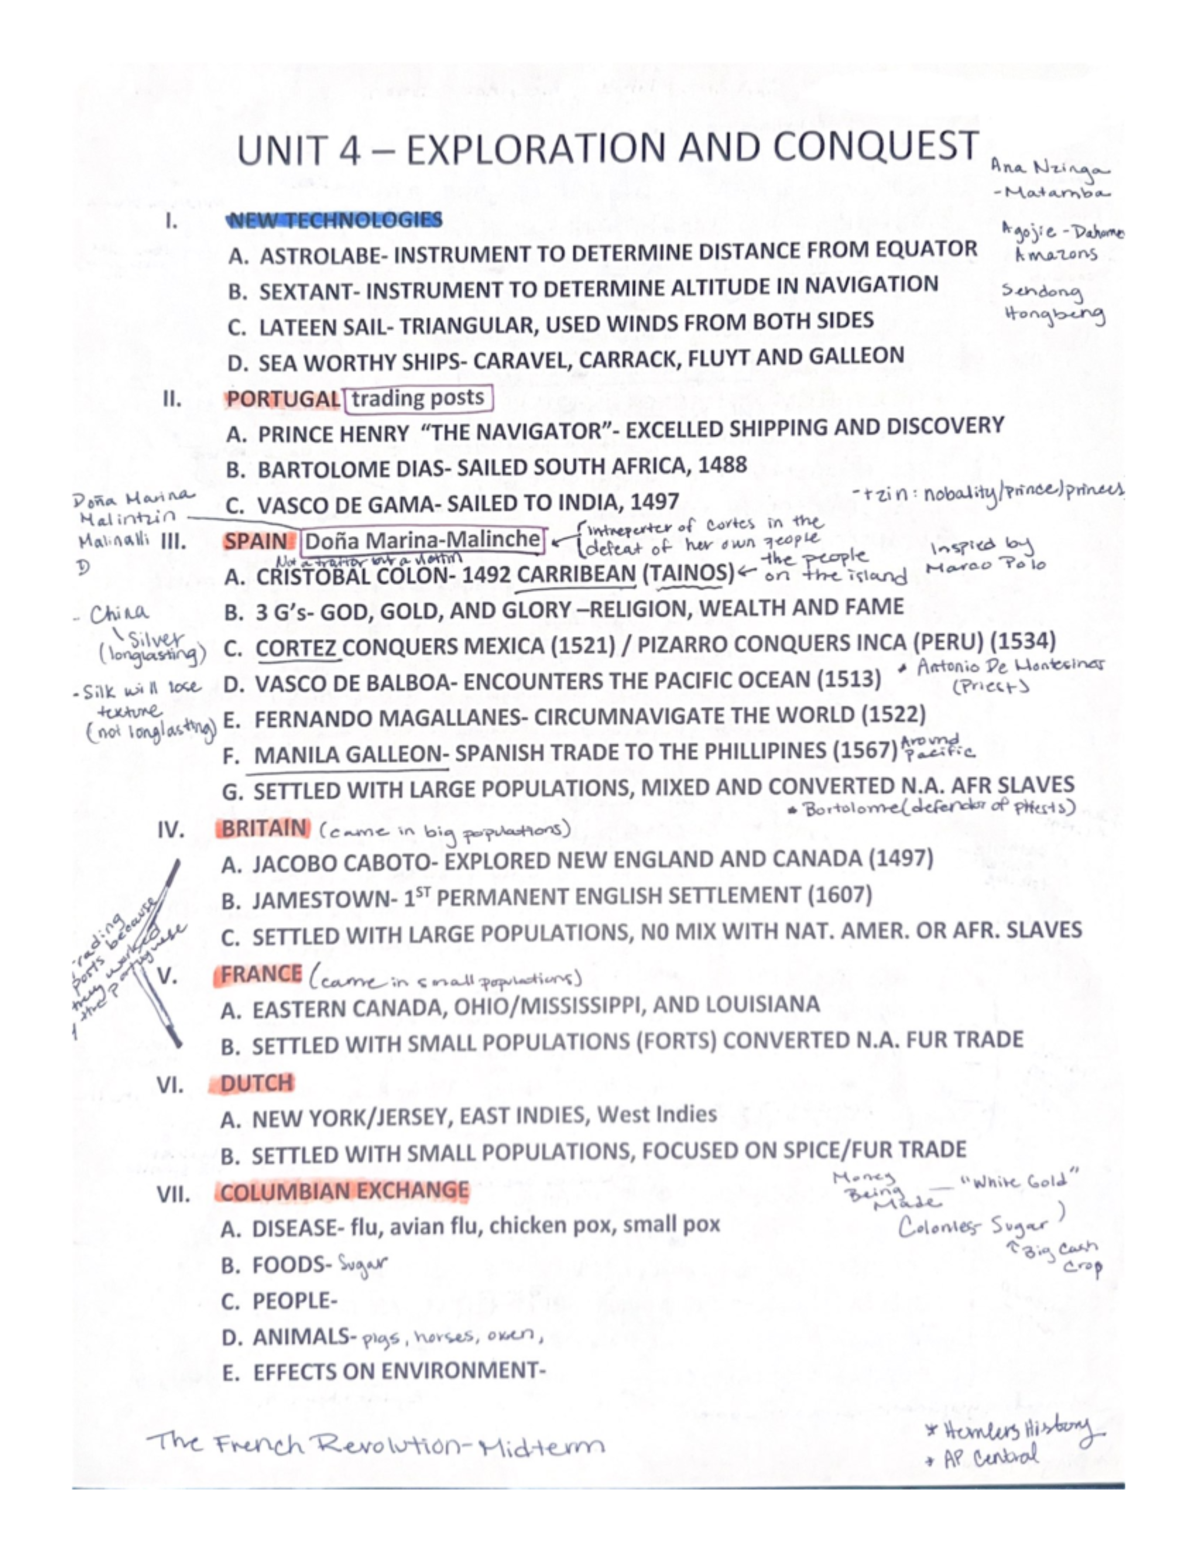 UNIT 4 – EXPLORATION AND CONQUEST
Ana Nzinga
-Matamba
Agojie - Dahome
Amazons
Sendong
Hongbeng
I. NEW TECHNOLOGIES
A. ASTROLABE- INSTRUMENT TO DETERMINE DISTANCE FROM EQUATOR
B. SEXTANT- INSTRUMENT TO DETERMINE ALTITUDE IN NAVIGATION
C. LATEEN SAIL- TRIANGULAR, USED WINDS FROM BOTH SIDES
D. SEA WORTHY SHIPS- CARAVEL, CARRACK, FLUYT AND GALLEON
II. PORTUGAL trading posts
A. PRINCE HENRY “THE NAVIGATOR”- EXCELLED SHIPPING AND DISCOVERY
B. BARTOLOME DIAS- SAILED SOUTH AFRICA, 1488
C. VASCO DE GAMA- SAILED TO INDIA, 1497
-tzin: nobality/prince/princess
Doña Marina
Malintzin
Malinalli
D
III. SPAIN Doña Marina-Malinche
intreperter of cortes in the
defeat of her own people
Not a traitor but a victim
A. CRISTOBAL COLON- 1492 CARRIBEAN (TAINOS)
the people
on the island
Inspied by
Marco Polo
B. 3 G's- GOD, GOLD, AND GLORY –RELIGION, WEALTH AND FAME
- China
Silver
(longlasting)
C. CORTEZ CONQUERS MEXICA (1521) / PIZARRO CONQUERS INCA (PERU) (1534)
- Silk will lose
texture
(not longlasting)
D. VASCO DE BALBOA- ENCOUNTERS THE PACIFIC OCEAN (1513)
* Antonio De Montesinos
(Priest)
E. FERNANDO MAGALLANES- CIRCUMNAVIGATE THE WORLD (1522)
F. MANILA GALLEON- SPANISH TRADE TO THE PHILLIPINES (1567) Around
Pacific
G. SETTLED WITH LARGE POPULATIONS, MIXED AND CONVERTED N.A. AFR SLAVES
* Bortolome (defendor of
IV. BRITAIN (came in big populations)
A. JACOBO CABOTO- EXPLORED NEW ENGLAND AND CANADA (1497)
B. JAMESTOWN- 1ST PERMANENT ENGLISH SETTLEMENT (1607)
C. SETTLED WITH LARGE POPULATIONS, N0 MIX WITH NAT. AMER. OR AFR. SLAVES
rading
ports because
they worked
the Portuguese
V. FRANCE (came in small populations)
A. EASTERN CANADA, OHIO/MISSISSIPPI, AND LOUISIANA
B. SETTLED WITH SMALL POPULATIONS (FORTS) CONVERTED N.A. FUR TRADE
VI. DUTCH
A. NEW YORK/JERSEY, EAST INDIES, West Indies
B. SETTLED WITH SMALL POPULATIONS, FOCUSED ON SPICE/FUR TRADE
VII. COLUMBIAN EXCHANGE
Money
Being
Made — "White Gold"
Colonies- Sugar
Big Cash
Crop
A. DISEASE- flu, avian flu, chicken pox, small pox
B. FOODS- Sugar
C. PEOPLE-
D. ANIMALS- pigs, horses, oxen,
E. EFFECTS ON ENVIRONMENT-
The French Revolution-Midterm
* Hemlers History
* AP Central